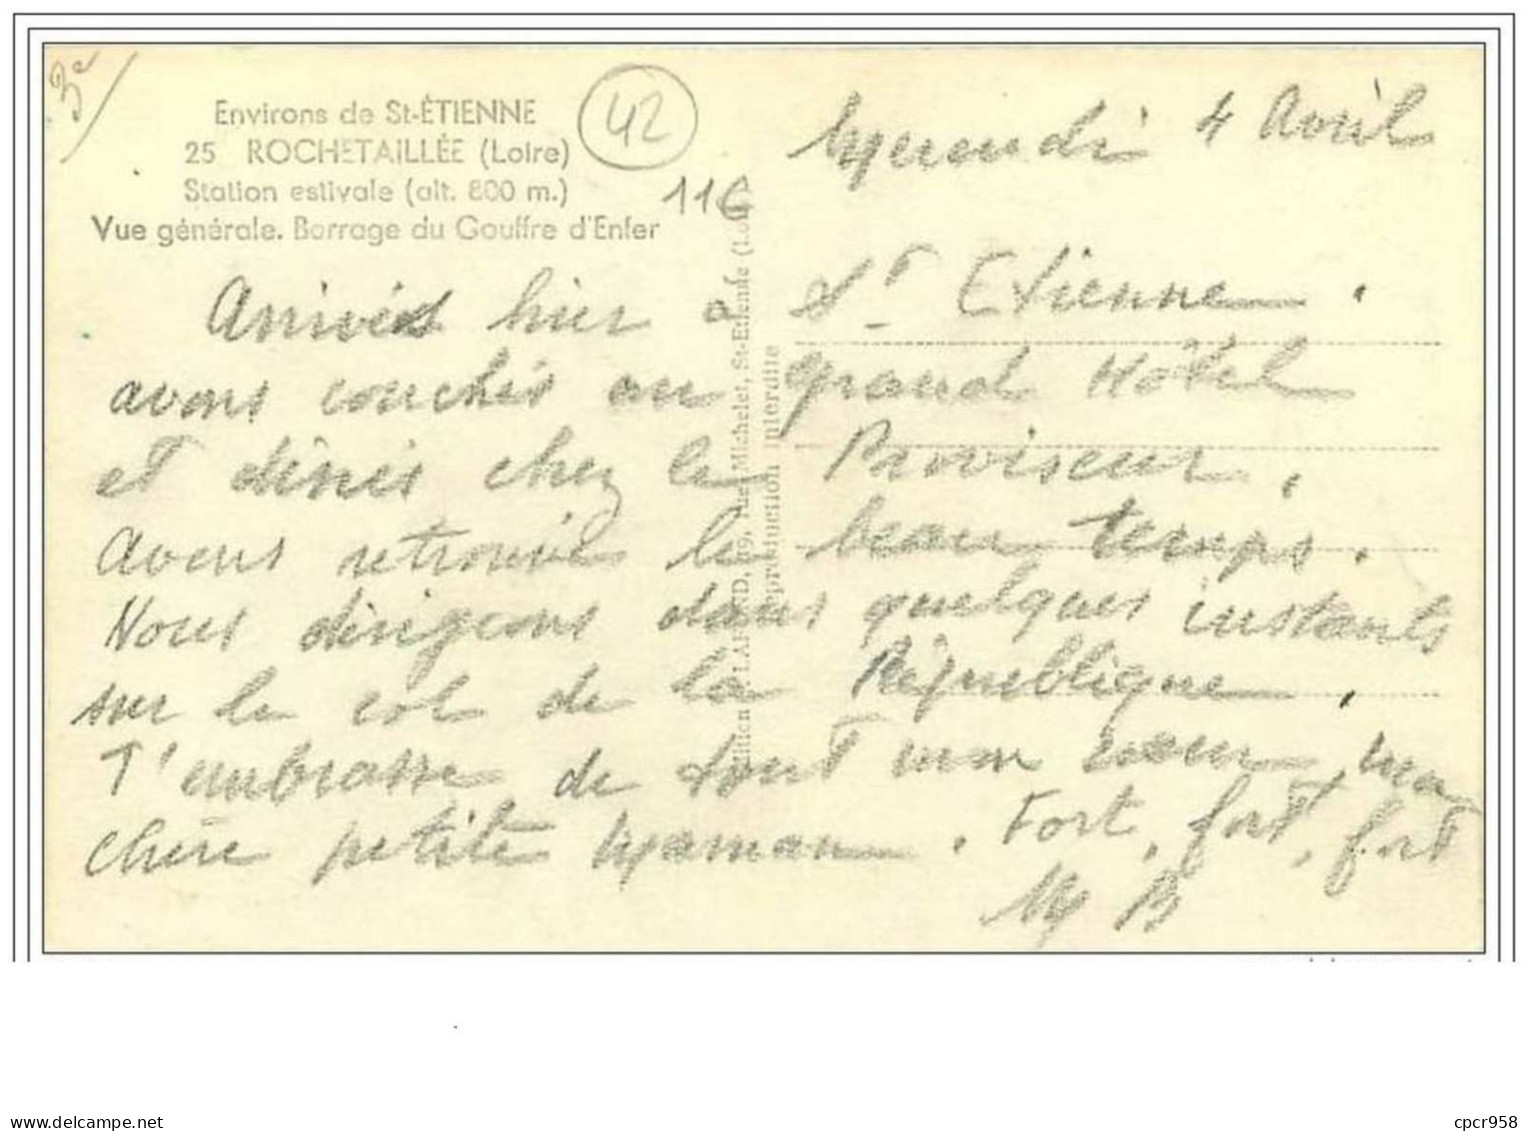 3e
Environs de St-ÉTIENNE
25 ROCHETAILLÉE (Loire)
Station estivale (alt. 800 m.)
Vue générale. Barrage du Gouffre d'Enfer
42
11€
4 Avril
Arrivés hier à St Etienne.
avons couchés au grand Hôtel
et dinés chez le Proviseur.
Avons retrouvé le beau temps.
Nous dirigeons dans quelques instants
sur le col de la République.
T'embrasse de tout mon coeur, ma
chère petite Maman. Fort, fort, fort
M B
19, rue Michelet, St-Etienne
Reproduction interdite
cpcr958